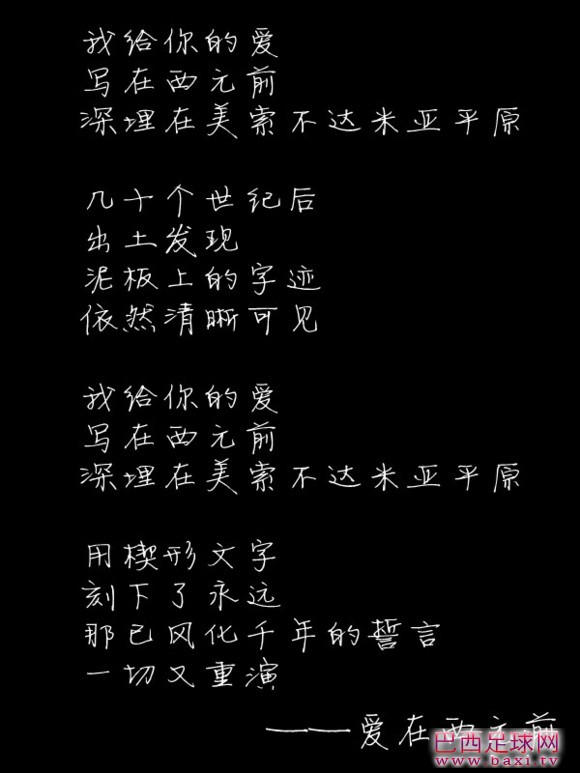 我给你的爱
写在西元前
深埋在美索不达米亚平原
几十个世纪后
出土发现
泥板上的字迹
依然清晰可见
我给你的爱
写在西元前
深埋在美索不达米亚平原
用楔形文字
刻下了永远
那已风化千年的誓言
一切又重演
——爱在西元前
巴西足球网
www.baxi.tv